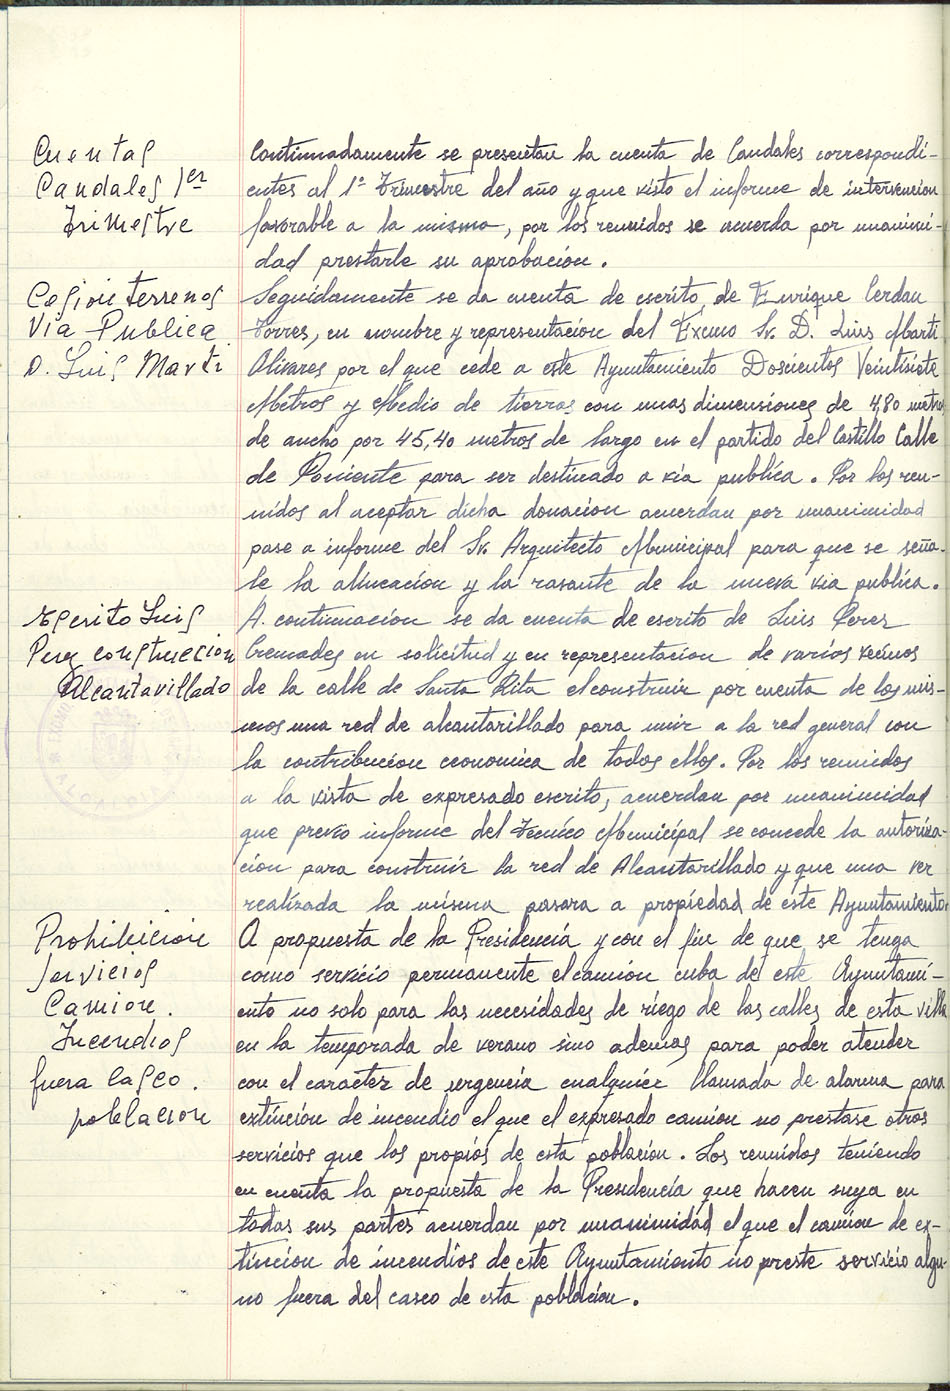 Cuentas
Caudales 1er
Trimestre
Continuadamente se presentan la cuenta de Caudales correspondi-
entes al 1º Trimestre del año y que visto el informe de intervencion
favorable a la misma, por los reunidos se acuerda por unanimi-
dad prestarle su aprobación.
Cesion terrenos
Via Publica
D. Luis Marti
Seguidamente se da cuenta de escrito de Enrique Cerdan
Torres, en nombre y representación del Excmo Sr. D. Luis Marti
Olivares por el que cede a este Ayuntamiento Doscientos Veintisiete
Metros y Medio de tierras con unas dimensiones de 4,80 metros
de ancho por 45,40 metros de largo en el partido del Castillo Calle
de Poniente para ser destinado a via publica. Por los reu-
nidos al aceptar dicha donacion acuerdan por unanimidad
pase a informe del Sr. Arquitecto Municipal para que se seña-
le la alineación y la rasante de la nueva via publica.
Escrito Luis
Perez construccion
Alcantarillado
A. continuación se da cuenta de escrito de Luis Perez
Cremades en solicitud y en representacion de varios vecinos
de la calle de Santa Rita el construir por cuenta de los mis-
mos una red de alcantarillado para unir a la red general con
la contribucion economica de todos ellos. Por los reunidos
a la vista de expresado escrito, acuerdan por unanimidad
que previo informe del Tecnico Municipal se concede la autoriza-
cion para construir la red de Alcantarillado y que una vez
realizada la misma pasara a propiedad de este Ayuntamiento.
Prohibicion
Servicios
Camion.
Incendios
fuera casco.
poblacion
A propuesta de la Presidencia y con el fin de que se tenga
como servicio permanente el camion cuba de este Ayuntami-
ento no solo para las necesidades de riego de las calles de esta villa
en la temporada de verano sino ademas para poder atender
con el caracter de urgencia cualquier llamada de alarma para
extinción de incendio el que el expresado camion no prestase otros
servicios que los propios de esta población. Los reunidos teniendo
en cuenta la propuesta de la Presidencia que hacen suya en
todas sus partes acuerdan por unanimidad el que el camion de ex-
tincion de incendios de este Ayuntamiento no preste servicio algu-
no fuera del casco de esta población.